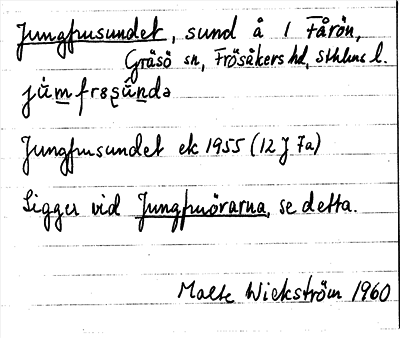 Jungfrusundet, sund å 1 Fårön,
Gräsö sn, Frösåkers hd, Sthlms l.
Jungfrusundet ek 1955 (12 J 7a)
Ligger vid Jungfruörarna, se detta.
Malte Wickström 1960